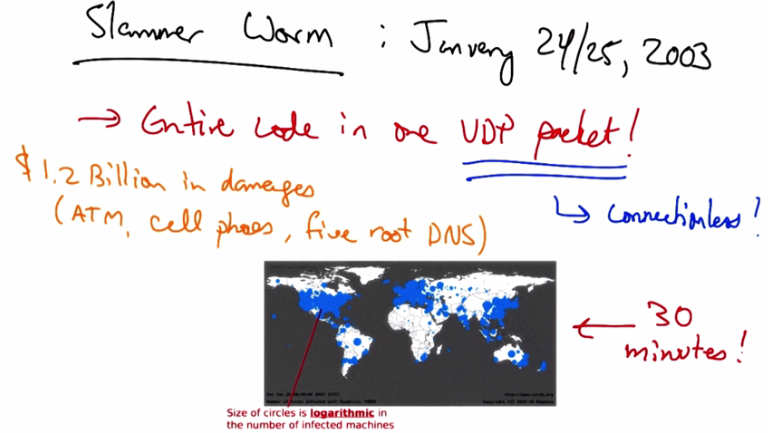 Slammer Worm : January 24/25, 2003
→ Entire code in one UDP packet!
$1.2 Billion in damages
(ATM, cell phones, five root DNS)
↳ connectionless!
← 30
minutes!
Size of circles is logarithmic in
the number of infected machines